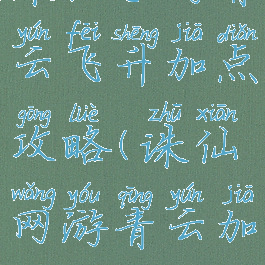 yún fēi shēng jiā diǎn
云飞升加点
gōng lüè zhū xiān
攻略(诛仙
wǎng yóu qīng yún jiā
网游青云加